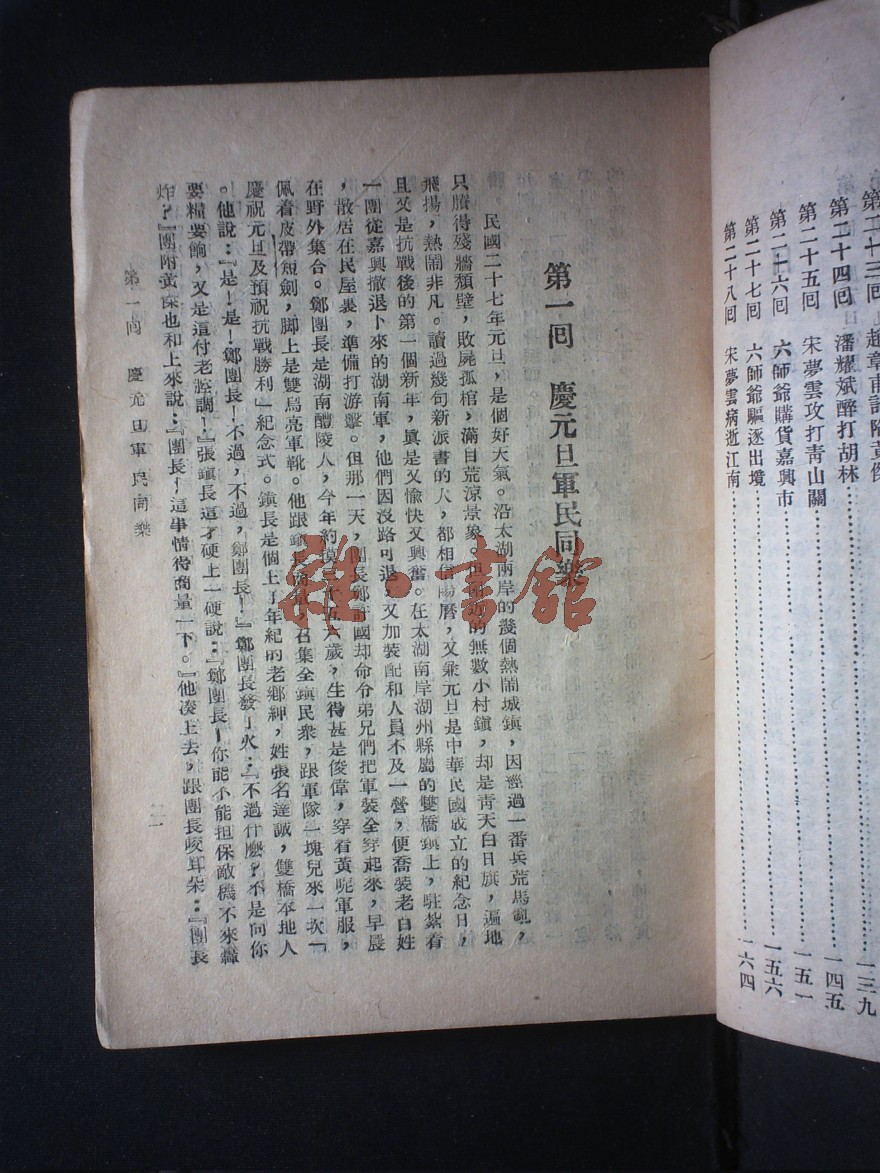 第二十四回 潘耀斌醉打胡林……………一四五
第二十五回 宋夢雲攻打靑山關……………一五一
第二十六回 六師爺購貨嘉興市……………一五六
第二十七回 六師爺驅逐出境
第二十八回 宋夢雲病逝江南……………一六四
第一回 慶元旦軍民同樂
民國二十七年元旦，是個好天氣。沿太湖兩岸的幾個熱鬧城鎭，因經過一番兵荒馬亂，
只賸得殘牆頹壁，敗屍孤棺，滿目荒涼景象。的無數小村鎭，却是靑天白日旗，遍地
飛揚，熱鬧非凡。讀過幾句新派書的人，都相信陽曆，又兼元旦是中華民國成立的紀念日，
且又是抗戰後的第一個新年，眞是又愉快又興奮。在太湖南岸湖州縣屬的雙橋鎭上，駐紮着
一團從嘉興撤退下來的湖南軍，他們因沒路可退，又加裝配和人員不及一營，便喬裝老百姓
，散居在民屋裏，準備打游擊。但那一天，團長鄭國却命令弟兄們把軍裝全穿起來，早晨
在野外集合。鄭團長是湖南醴陵人，今年約摸三十五六歲，生得甚是俊偉，穿着黃呢軍服，
佩着皮帶短劍，脚上是雙烏亮軍靴。他跟鎭長商量，召集全鎭民衆，跟軍隊一塊兒來一次「
慶祝元旦及預祝抗戰勝利」紀念式。鎭長是個上了年紀的老鄉紳，姓張名達誠，雙橋本地人
。他說：『是！是！鄭團長！不過，不過，鄭團長！』鄭團長發了火：『不過什麼？不是向你
要糧要餉，又是這付老腔調！』張鎭長這才硬上一硬說：『鄭團長！你能不能担保敵機不來轟
炸？』團附黃傑也和上來說：『團長！這事情得商量一下。』他湊上去，跟團長咬耳朶：『團長
第一回 慶元旦軍民同樂
一
雜·書館